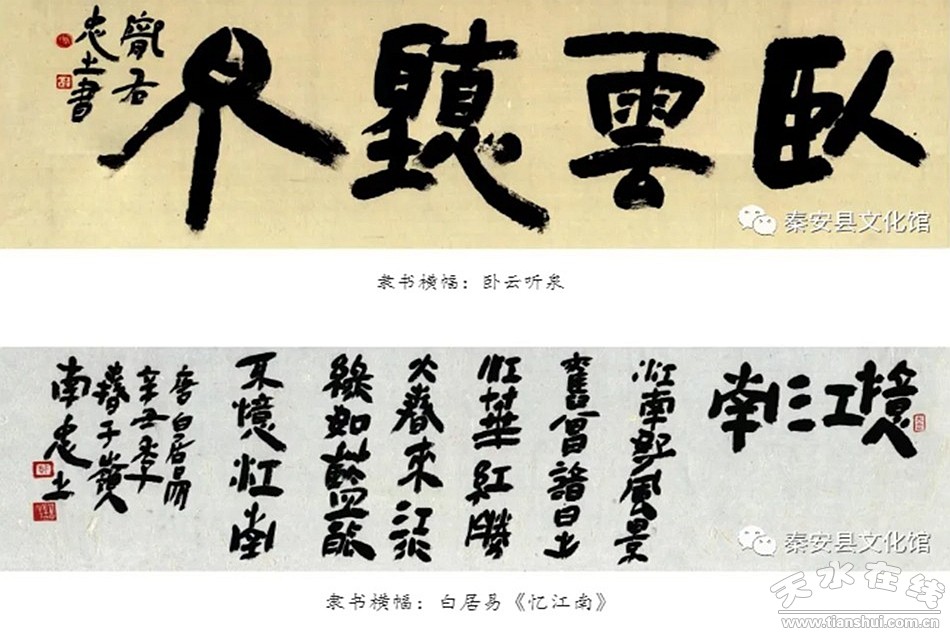 臥雲聽泉
隴右
秦安县文化馆
隶书横幅：卧云听泉
憶江南
江南好風景
舊曾諳日出
江華紅勝
火春來江水
綠如藍能
不憶江南
唐白居易
辛丑
南
秦安县文化馆
隶书横幅：白居易《忆江南》
天水在线
www.tianshui.com.cn